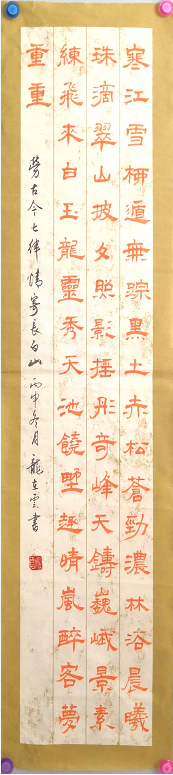 寒江雪柳遁無踪黑土赤松蒼勁濃林浴晨曦
珠滴翠山披夕照影摇彤奇峰天鑄巍峨景素
練飛來白玉龍靈秀天池饒野趣晴嵐醉客夢
重重
勞古今七律情寄長白山丙申冬月龍在雲書